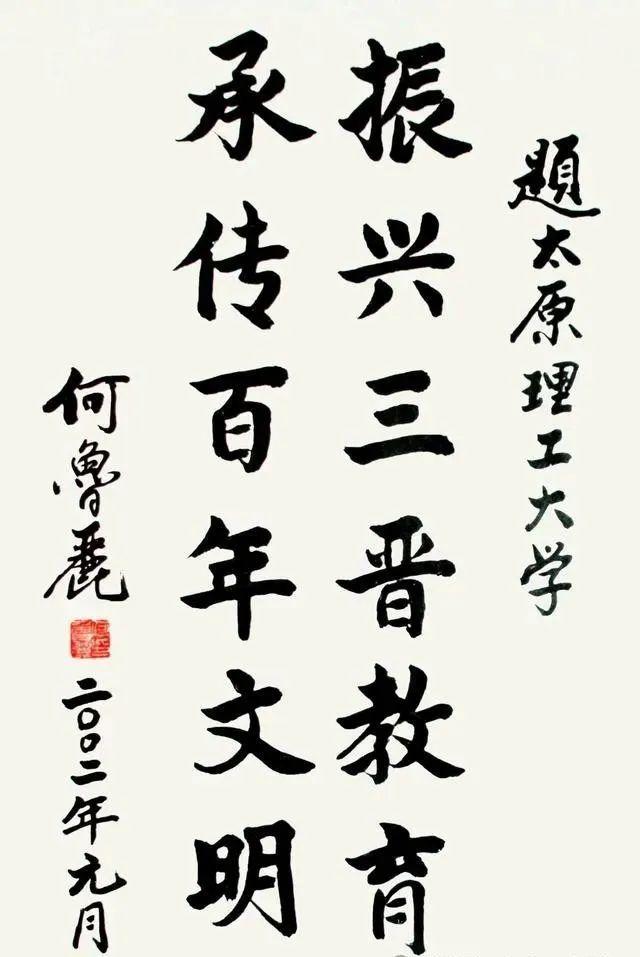 題太原理工大学
振兴三晋教育
承传百年文明
何魯麗
二〇〇二年元月